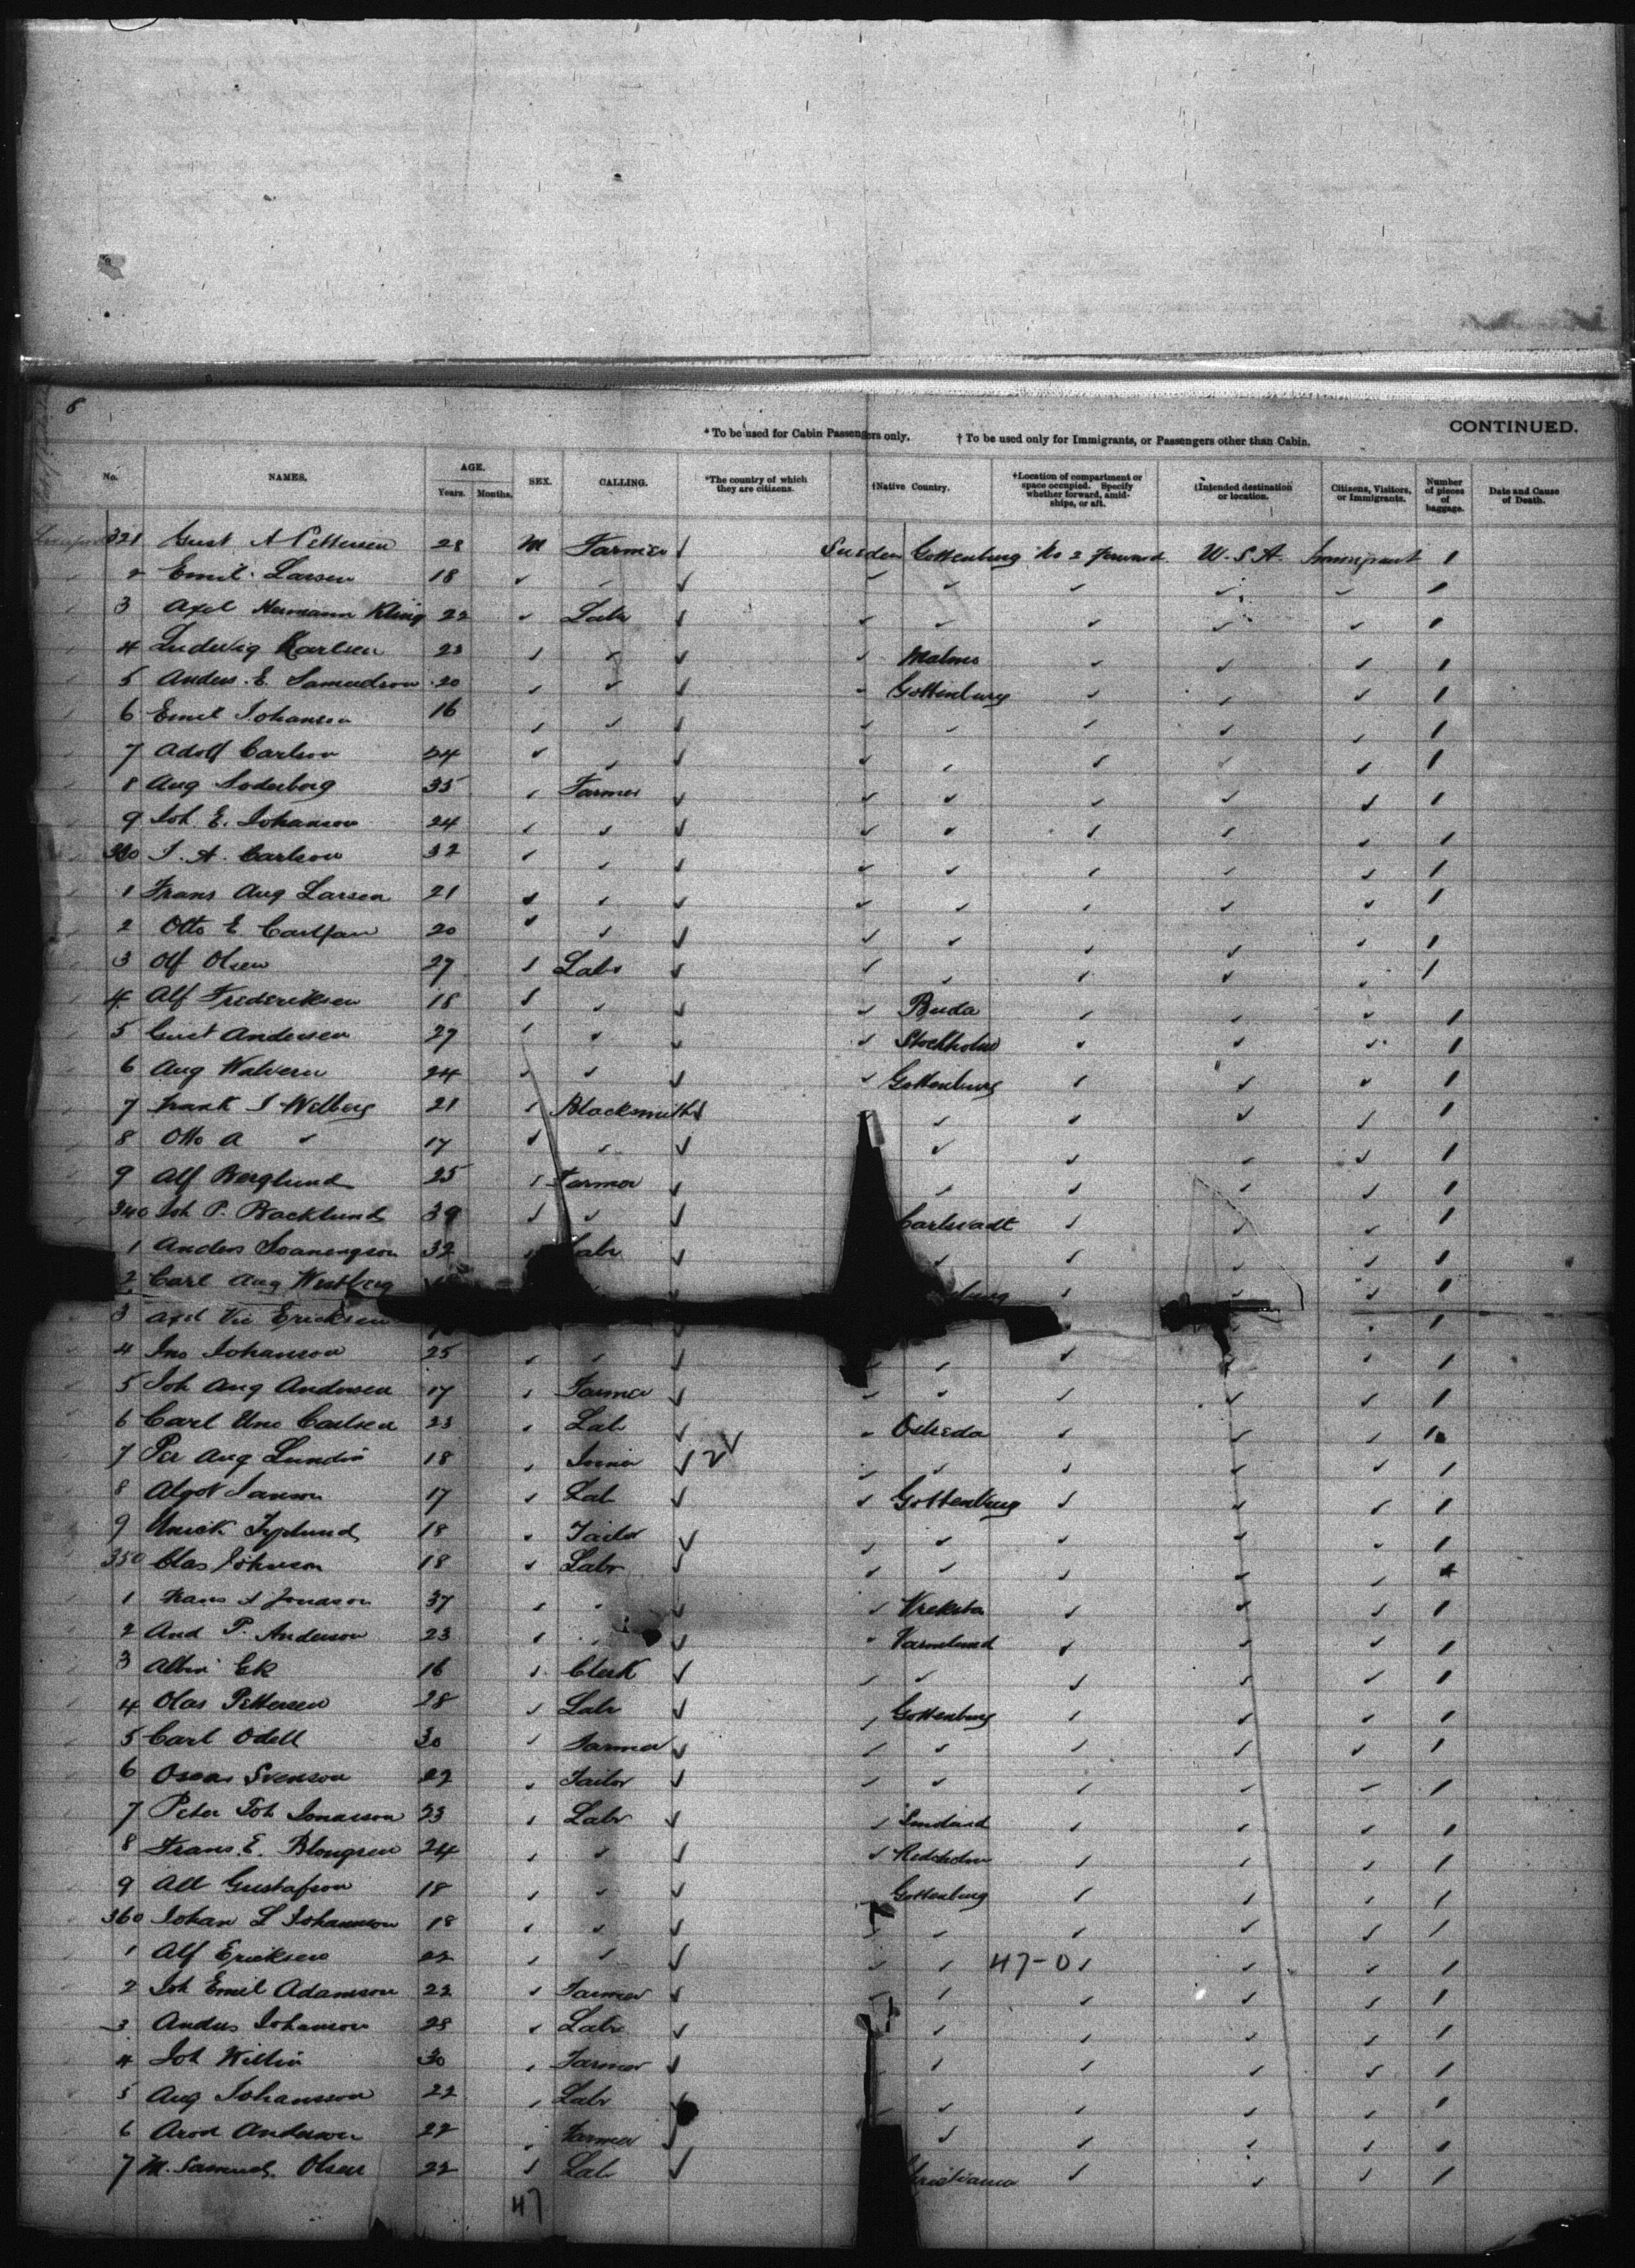 6
CONTINUED.
* To be used for Cabin Passengers only. † To be used only for Immigrants, or Passengers other than Cabin.
No. NAMES. AGE. Years. Months. SEX. CALLING. *The country of which they are citizens. †Native Country. †Location of compartment or space occupied. Specify whether forward, amidships, or aft. †Intended destination or location. Citizens, Visitors, or Immigrants. Number of pieces of baggage. Date and Cause of Death.
321 Gust A Pettersen 28 M Farmer √ Sweden Gottenburg No 2 Forward U.S.A. Immigrant 1
2 Emil Larsen 18 √ 1
3 Axel Hermann Kling 22 Labr √ 1
4 Ludwig Karlsen 23 √ Malmo 1
5 Anders E. Samuelson 20 √ Gottenburg 1
6 Emil Johansen 16 √ 1
7 Adolf Carlson 24 √ 1
8 Aug Soderberg 35 Farmer √ 1
9 Joh E. Johanson 24 √ 1
330 J. A. Carlson 32 √ 1
1 Frans Aug Larsen 21 √ 1
2 Otto E 20 √ 1
3 Olf Olsen 27 Labr √ 1
4 Alf Frederiksen 18 √ Buda 1
5 Gust Andersen 27 √ Stockholm 1
6 Aug 24 √ Gottenburg 1
7 Frank J Welberg 21 Blacksmith √ 1
8 Otto A 17 √ 1
9 Alf Berglund 25 Farmer √ 1
340 Joh P. Backlund 39 √ 1
1 Anders 32 Labr √ 1
2 Carl Aug Westberg 1
3 Axel Vic Ericksen 1
4 Jno Johanson 25 √ 1
5 Joh Aug Andersen 17 Farmer √ 1
6 Carl Uno Carlsen 23 Lab √ 1
7 Per Aug Lundin 18 √ 2 √ 1
8 Algot Janson 17 Lab √ Gottenburg 1
9 18 Tailor √ 1
350 Clas Johnson 18 Labr √
1 Frans A Jonason 37 √ 1
2 And P. Anderson 23 √ Varmland 1
3 Albin Ek 16 Clerk √ 1
4 Olas Pettersen 28 Labr √ Gottenburg 1
5 Carl Odell 30 Farmer √ 1
6 Oscar Svenson 22 Tailor √ 1
7 Peter Joh Jonasson 23 Labr √ 1
8 Frans E. Blongren 24 √ 1
9 Gustafson 18 √ Gottenburg 1
360 Johan L Johannson 18 √ 1
1 Alf Ericksen 22 √ 47-0 1
2 Joh Emil Adamson 22 Farmer √ 1
3 Andus Johanson 28 Labr √ 1
4 Joh Willin 30 Farmer √ 1
5 Aug Johansson 22 Labr √ 1
6 Anderson 22 Farmer √ 1
7 M. Samuel Olsen 22 Lab √ Christiania 1
47